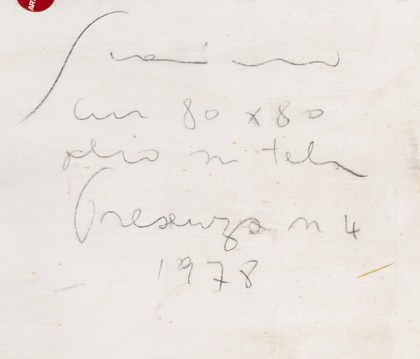 cm 80 x 80
olio su tela
Presenza n 4
1978